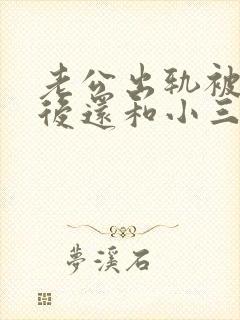 老公出轨被
後還和小三
夢溪石